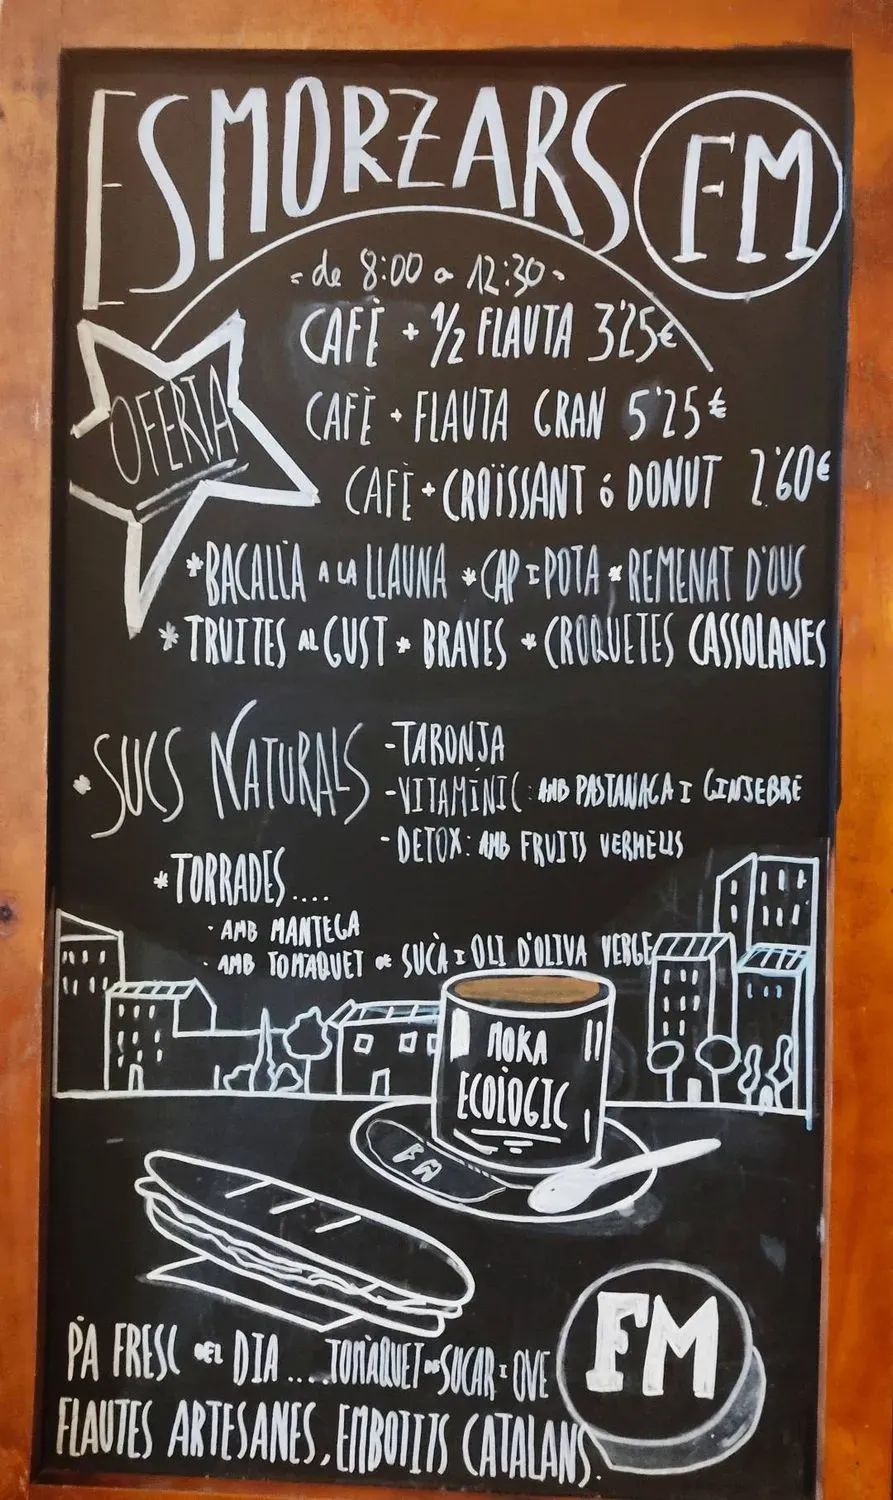 ESMORZARS FM
- de 8:00 a 12:30 -
CAFÈ + 1/2 FLAUTA 3'25€
OFERTA
CAFÈ + FLAUTA GRAN 5'25€
CAFÈ + CROÏSSANT ó DONUT 2'60€
*BACALLÀ A LA LLAUNA *CAP I POTA *REMENAT D'OUS
*TRUITES AL GUST *BRAVES *CROQUETES CASSOLANES
*SUCS NATURALS
-TARONJA
-VITAMÍNIC: AMB PASTANAGA I GINJEBRE
-DETOX: AMB FRUITS VERMELLS
*TORRADES....
· AMB MANTEGA
· AMB TOMAQUET DE SUCÀ I OLI D'OLIVA VERGE
MOKA
ECOLÒGIC
FM
FM
PA FRESC DEL DIA .... TOMÀQUET DE SUCAR I OVE
FLAUTES ARTESANES, EMBOTITS CATALANS.